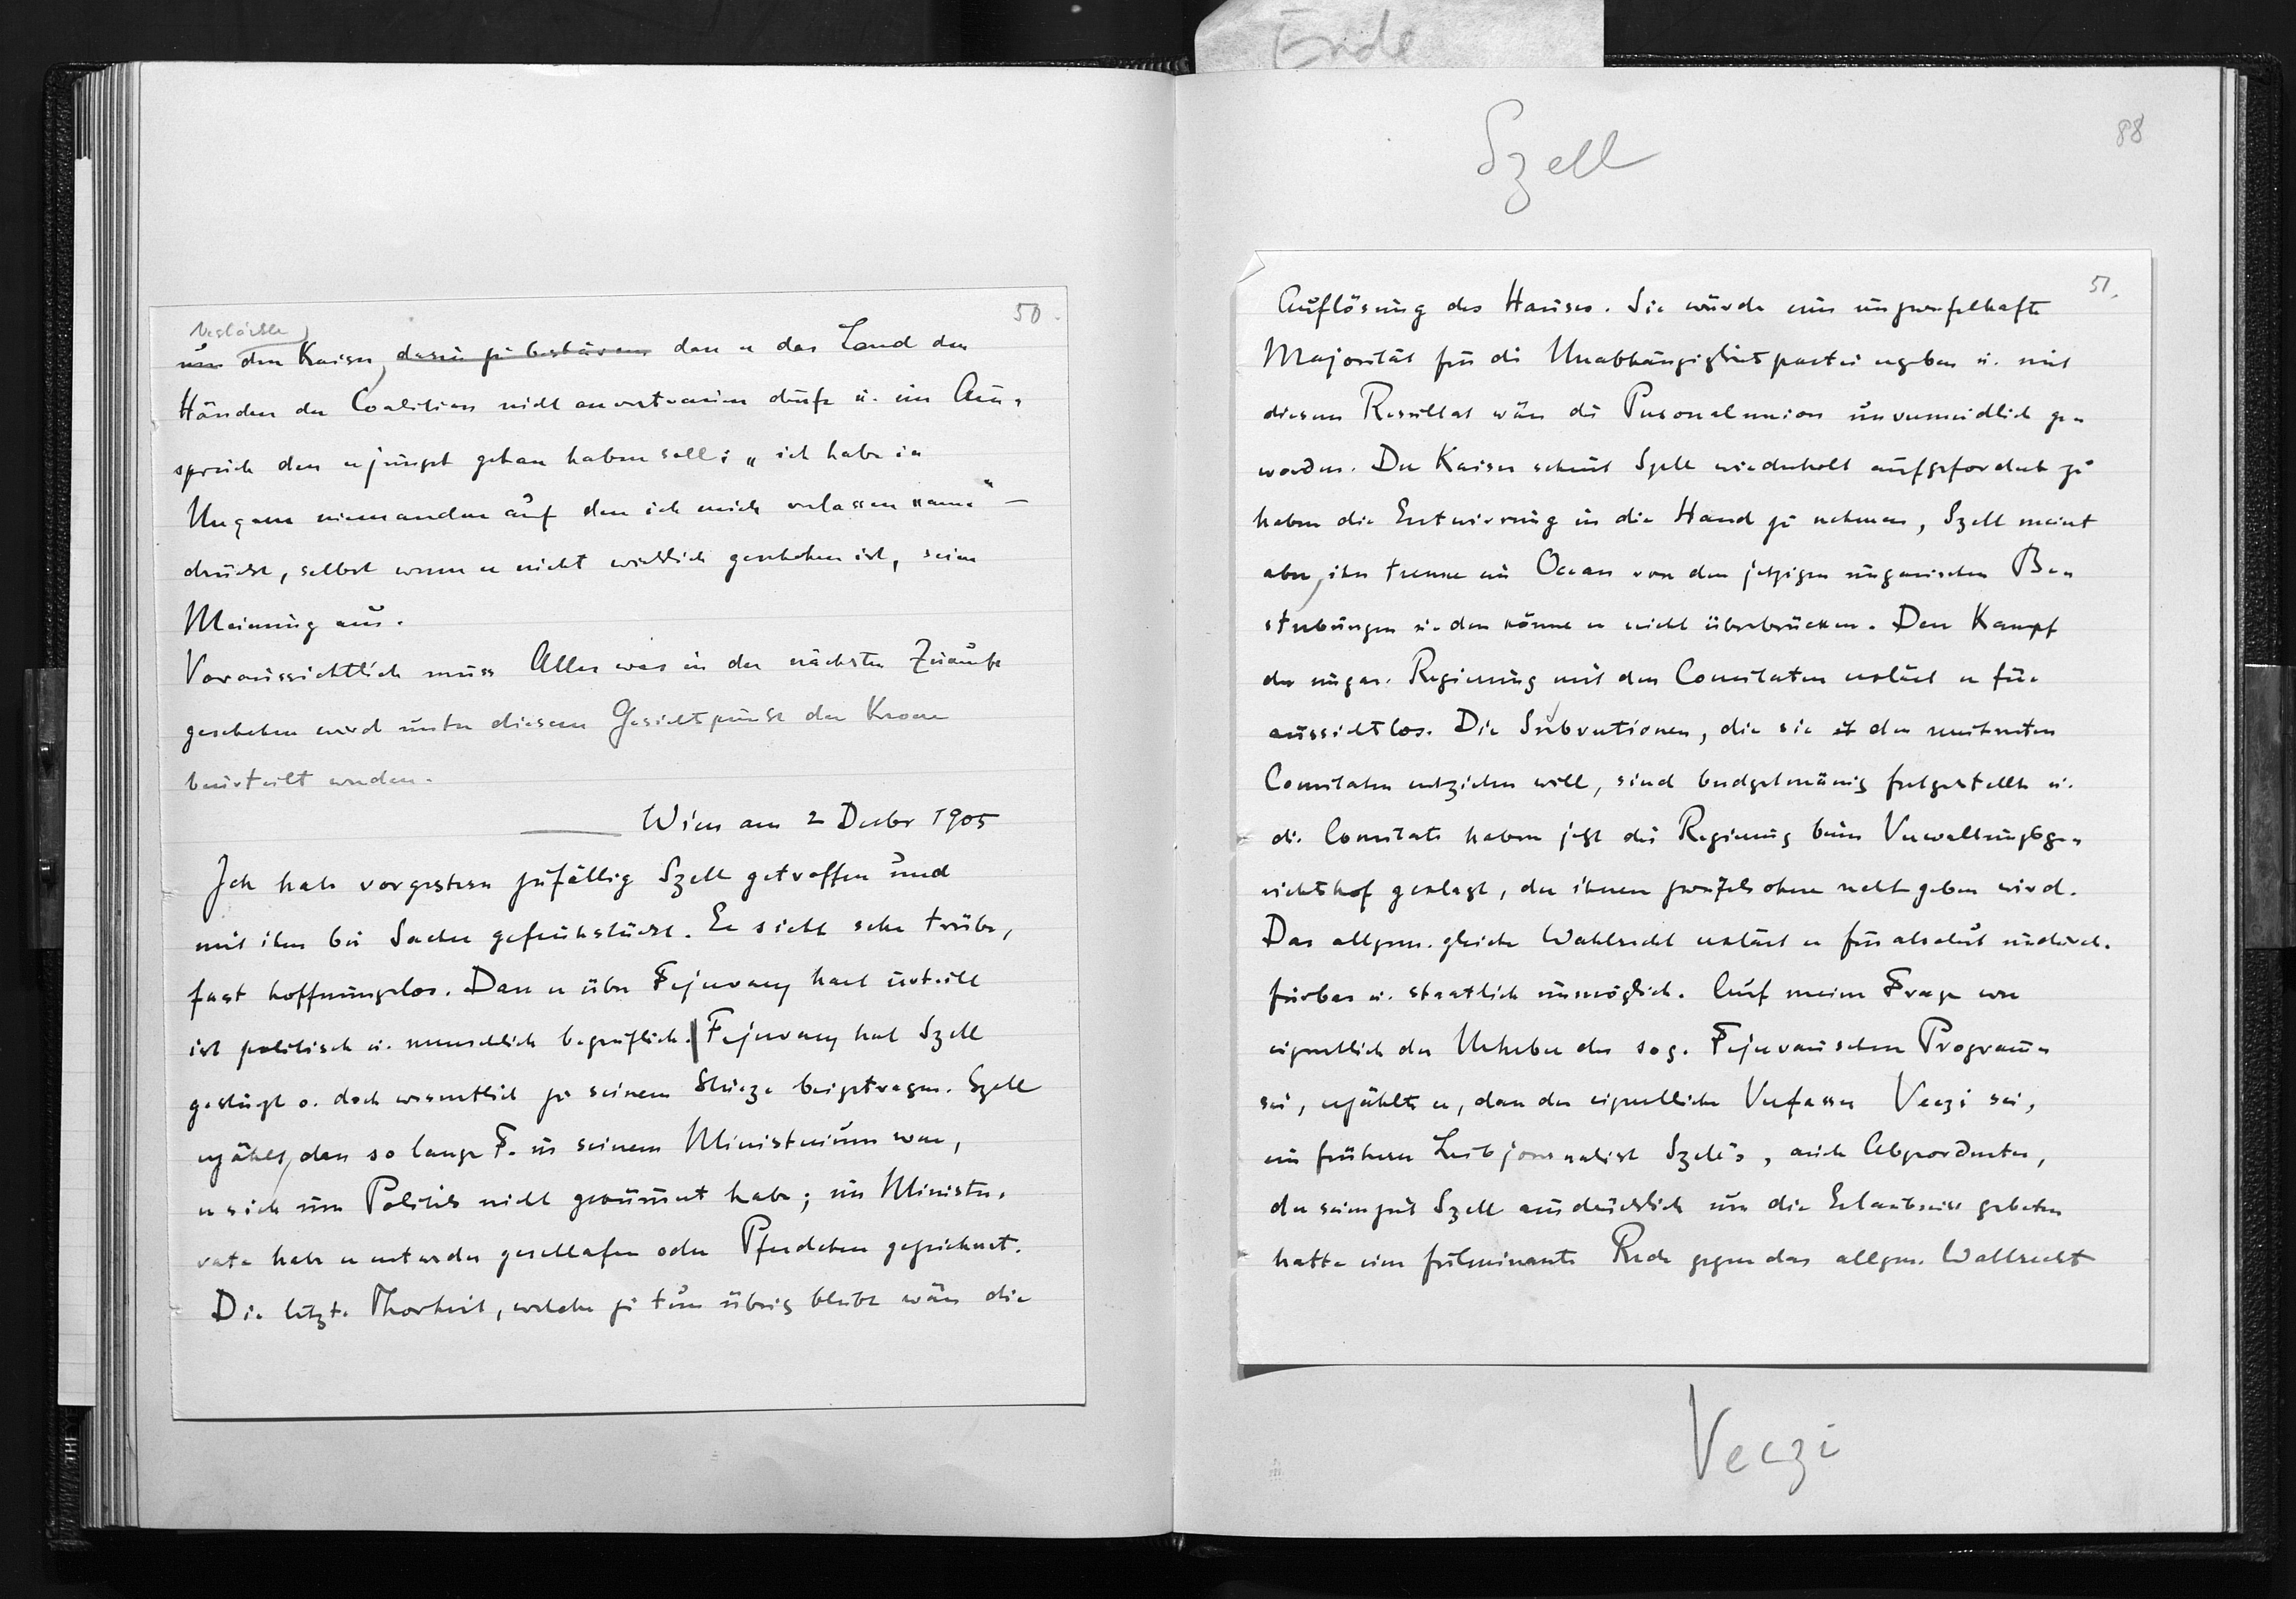 Ende
50.
bestärkte
um den Kaiser, darin zu bestärken dass er das Land den
Händen der Coalition nicht anvertrauen dürfe u. im Aus-
spruch den er jüngst gethan haben soll: „ich habe in
Ungarn niemanden auf den ich mich verlassen kann“ –
drückt, selbst wenn er nicht wirklich geschehen ist, seine
Meinung aus.
Voraussichtlich muss Alles was in der nächsten Zukunft
geschehen wird unter diesem Gesichtspunkt der Krone
beurteilt werden.
Wien am 2 Dezbr 1905
Ich habe vorgestern zufällig Szell getroffen und
mit ihm bei Sacher gefrühstückt. Er sieht sehr trübe,
fast hoffnungslos. Dass er über Fejervary hart urteilt
ist politisch u. menschlich begreiflich. Fejervary hat Szell
gestürzt o. doch wesentlich zu seinem Sturze beigetragen. Szell
erzählt, dass so lange F. in seinem Ministerium war,
er sich um Politik nicht gekümmert habe; im Minister-
rate habe er entweder geschlafen oder Pferdchen gezeichnet.
Die letzte Thorheit, welche zu tun übrig bleibt wäre die
Szell
88
51.
Auflösung des Hauses. Sie würde eine unzweifelhafte
Majorität für die Unabhängigkeitspartei ergeben u. mit
diesem Resultat wäre die Personalunion unvermeidlich ge-
worden. Der Kaiser scheint Szell wiederholt aufgefordert zu
haben die Entwirrung in die Hand zu nehmen, Szell meint
aber, ihn trenne ein Ocean von den jetzigen ungarischen Be-
strebungen u. den könne er nicht überbrücken. Den Kampf
der ungar. Regierung mit den Comitaten erklärt er für
aussichtlos. Die Subventionen, die sie den renitenten
Comitaten entziehen will, sind budgetmässig festgestellt u.
die Comitate haben jetzt die Regierung beim Verwaltungsge-
richtshof geklagt, der ihnen zweifelsohne recht geben wird.
Das allgem. gleiche Wahlrecht erklärt er für absolut undurch-
führbar u. staatlich unmöglich. Auf meine Frage wer
eigentlich der Urheber des sog. Fejervarischen Programms
sei, erzählte er, dass der eigentliche Verfasser Veczi sei,
ein früherer Leibjournalist Szell's, auch Abgeordneter,
der seinerzeit Szell ausdrücklich um die Erlaubniss gebeten
hatte eine fulminante Rede gegen das allgem. Wahlrecht
Veczi